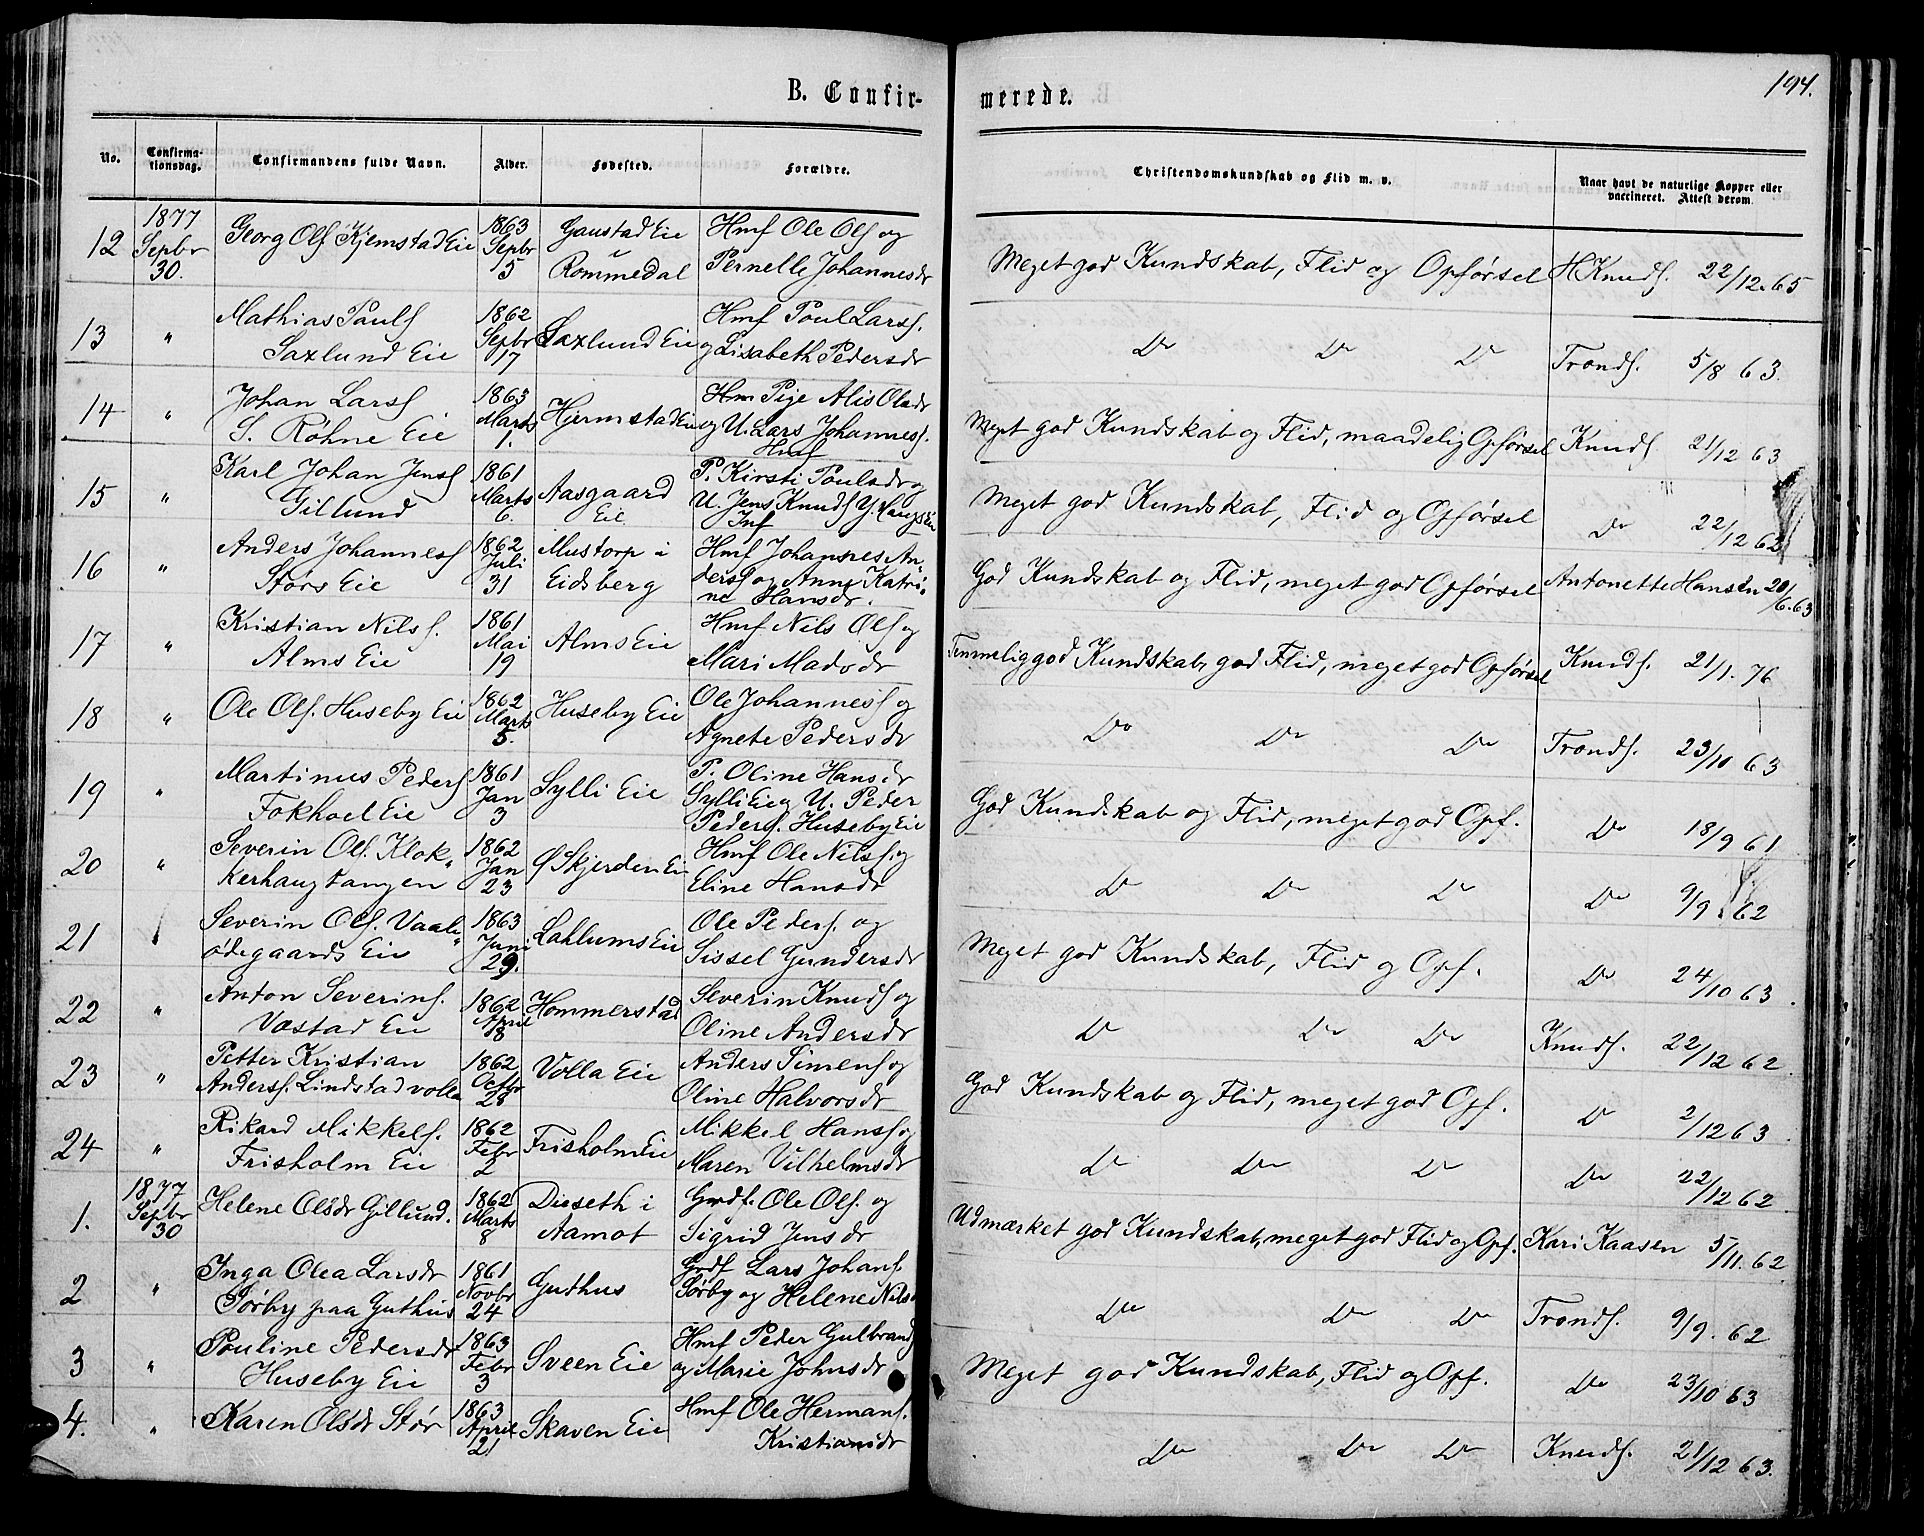 194.
B. Confir-
merede.
No.
Confirma-
tionsdag.
Confirmandens fulde Navn.
Alder.
Fødested.
Forældre.
Christendomskundskab og Flid m. v.
Naar havt de naturlige Kopper eller
vaccineret. Attest derom.
12 1877 Septbr 30. Georg Olss Kjemstad Eie 1863 Septbr 5 Gaustad Eie i Rommedal Hmf Ole Olss og Pernelle Johannesdr Meget god Kundskab, Flid og Opførsel H Knuds. 22/12.65
13 " Mathias Pauls Saxlund Eie 1862 Septbr 17 Saxlund Eie Hmf Poul Larss. og Lisabeth Pedersdr Do Do Do Tronds. 5/8 63.
14 " Johan Larss S. Røhne Eie 1863 Marts 1. Hjermstad Eie Pige Alis Olsdr og U. Lars Johanness. Hmf Meget god Kundskab og Flid, maadelig Opførsel Knuds 21/12 63
15 " Karl Johan Jenss Gillund 1861 Marts 6. Aasgaard Eie P. Kirsti Poulsdr og U. Jens Knuds Meget god Kundskab, Flid og Opførsel Do 22/12 62
16 " Anders Johanness Størs Eie 1862 Juli 31 Mustorp i Eidsberg Hmf Johannes An- derss og Anne Katri- ne Hansdr. God Kundskab og Flid, meget god Opførsel Antonette Hansen 20/6.63
17 " Kristian Nilss. Alms Eie 1861 Mai 19 Alms Eie Hmf Nils Ols og Mari Madsdr Temmelig god Kundskab, god Flid, meget god Opførsel Knuds. 21/1.76
18 " Ole Ols. Huseby Eie 1862 Marts 5. Huseby Eie Ole Johanness og Agnete Pedersdr Do Do Do Tronds. 23/10 63
19 " Martinus Peders Fokhoel Eie 1861 Jan 3 Sylli Eie P. Oline Hansdr Sylli Eie og U. Peder Peders. Huseby Eie God Kundskab og Flid, meget god Opf. Do 18/9 61
20 " Severin Ols. Klok- kerhaugtangen 1862 Jan 23 Ø Skjerden Ei Hmf Ole Nilss. og Eline Hansdr Do Do Do Do 9/9. 62
21 " Severin Ols. Vaal- ødegaards Eie 1863 Juni 29. Lahlums Eie Ole Peders. og Sissel Gundersdr Meget god Kundskab, Flid og Opf. Do 24/10 63.
22 " Anton Severins. Væstad Eie 1862 April 13 Hommerstad Severin Knuds og Oline Andersdr Do Do Do Knuds. 22/12 62.
23 " Petter Kristian Anderss. Lindstadvolla 1862 Octbr 28 Volla Eie Anders Simens og Oline Halvorsdr God Kundskab og Flid, meget god Opf. Do 2/12 63.
24 " Rikard Mikkels. Frisholm Eie 1862 Febr 2 Frisholm Eie Mikkel Hanss og Maren Vilhelmsdr Do Do Do Do 22/12 62
1. 1877 Septbr 30 Helene Olsdr Gillund. 1862 Marts 8 Diseth i Aamot Grdf. Ole Ols. og Sigrid Jensdr Udmærket god Kundskab, meget god Flid og Opf. Kari Kaasen 5/11.62
2 " Inga Olea Larsdr Sørby paa Guthus 1861 Novbr 24 Guthus Grdf Lars Johans. Sørby og Helene Nilsd Do Do Do Tronds. 9/9. 62
3 " Pouline Pedersdr Huseby Eie 1863 Febr 3 Sveen Eie Hmf Peder Gulbrands og Marie Johnsdr Meget god Kundskab, Flid og Opf. Do 23/10 63
4. " Karen Olsdr Stør 1863 April 21 Skaven Eie Hmf Ole Hermans. Kristiansdr Do Do Do Knuds. 21/12 63.